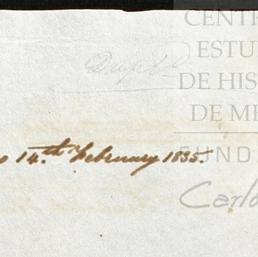 CENTR
ESTU
DE HIS
DE ME
FUND
Carlo
o 14.th February 1835.